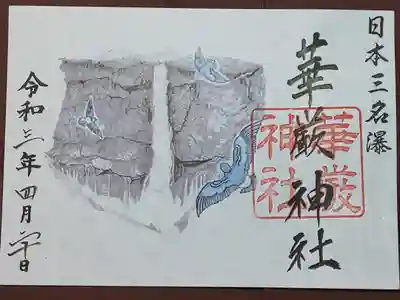 日本三名瀑
華厳神社
華厳
神社
令和三年四月日